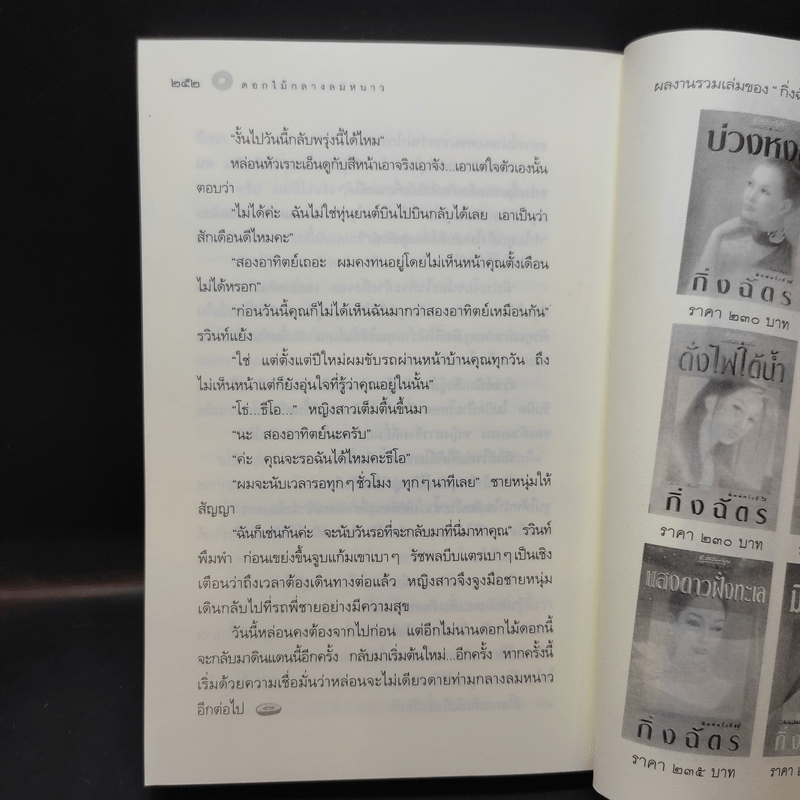 ๒๕๒ ดอกไม้กลางลมหนาว
“งั้นไปวันนี้กลับพรุ่งนี้ได้ไหม”
หล่อนหัวเราะเอ็นดูกับสีหน้าเอาจริงเอาจัง...เอาแต่ใจตัวเองนั้น
ตอบว่า
“ไม่ได้ค่ะ ฉันไม่ใช่หุ่นยนต์บินไปบินกลับได้เลย เอาเป็นว่า
สักเดือนดีไหมคะ”
“สองอาทิตย์เถอะ ผมคงทนอยู่โดยไม่เห็นหน้าคุณตั้งเดือน
ไม่ได้หรอก”
“ก่อนวันนี้คุณก็ไม่ได้เห็นฉันมากว่าสองอาทิตย์เหมือนกัน”
รวินท์แย้ง
“ใช่ แต่ตั้งแต่ปีใหม่ผมขับรถผ่านหน้าบ้านคุณทุกวัน ถึง
ไม่เห็นหน้าแต่ก็ยังอุ่นใจที่รู้ว่าคุณอยู่ในนั้น”
“โธ่...ธีโอ...” หญิงสาวเต็มตื้นขึ้นมา
“นะ สองอาทิตย์นะครับ”
“ค่ะ คุณจะรอฉันได้ไหมคะธีโอ”
“ผมจะนับเวลารอทุกๆ ชั่วโมง ทุกๆ นาทีเลย” ชายหนุ่มให้
สัญญา
“ฉันก็เช่นกันค่ะ จะนับวันรอที่จะกลับมาที่นี่มาหาคุณ” รวินท์
พึมพำ ก่อนเขย่งขึ้นจูบแก้มเขาเบาๆ รัชพลบีบแตรเบาๆ เป็นเชิง
เตือนว่าถึงเวลาต้องเดินทางต่อแล้ว หญิงสาวจึงจูงมือชายหนุ่ม
เดินกลับไปที่รถพี่ชายอย่างมีความสุข
วันนี้หล่อนคงต้องจากไปก่อน แต่อีกไม่นานดอกไม้ดอกนี้
จะกลับมาดินแดนนี้อีกครั้ง กลับมาเริ่มต้นใหม่...อีกครั้ง หากครั้งนี้
เริ่มด้วยความเชื่อมั่นว่าหล่อนจะไม่เดียวดายท่ามกลางลมหนาว
อีกต่อไป
ผลงานรวมเล่มของ “กิ่งฉั
บ่วงหง
กิ่งฉัตร
ราคา ๒๓๐ บาท
ดั่งไฟใต้น้ำ
กิ่งฉัตร
ราคา ๒๓๐ บาท
แสงดาวฝั่งทะเล
กิ่งฉัตร
ราคา ๒๓๕ บาท
ราคา